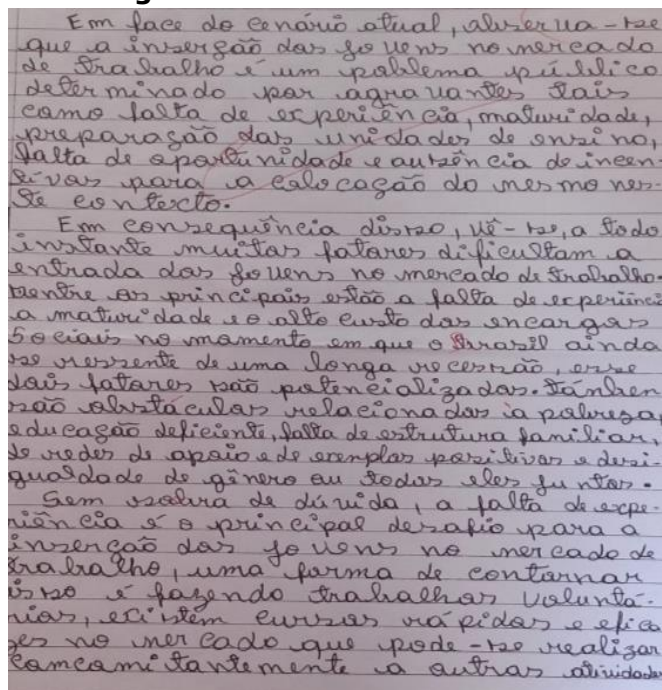 Em face do cenário atual, observa-se
que a inserção dos jovens no mercado
de trabalho é um poblema público
determinado por agravantes tais
como falta de experiência, maturidade,
preparação das unidades de ensino,
falta de oportunidade e ausência de incen
tivos para a colocação do mesmo nes-
te contexto.
Em consequência disso, vê-se, a todo
instante muitos fatores dificultam a
entrada dos jovens no mercado de trabalho.
Dentre os principais estão a falta de experiênci
a maturidade e o alto custo dos encargos
Sociais no momento em que o Brasil ainda
se ressente de uma longa recessão, esse
dois fatores são potencializados. Támben
são obstáculos relacionados à pobreza,
educação deficiente, falta de estrutura familiar,
de redes de apoio e de exemplos positivos e desi-
gualdade de gênero ou todos eles juntos.
Sem sobra de dúvida, a falta de expe-
riência é o principal desafio para a
inserção dos jovens no mercado de
trabalho, uma forma de contornar
isso é fazendo trabalhos voluntá-
rios, existem cursos rápidos e efica
zes no mercado que pode-se realizar
comcomitantemente a outras atividades